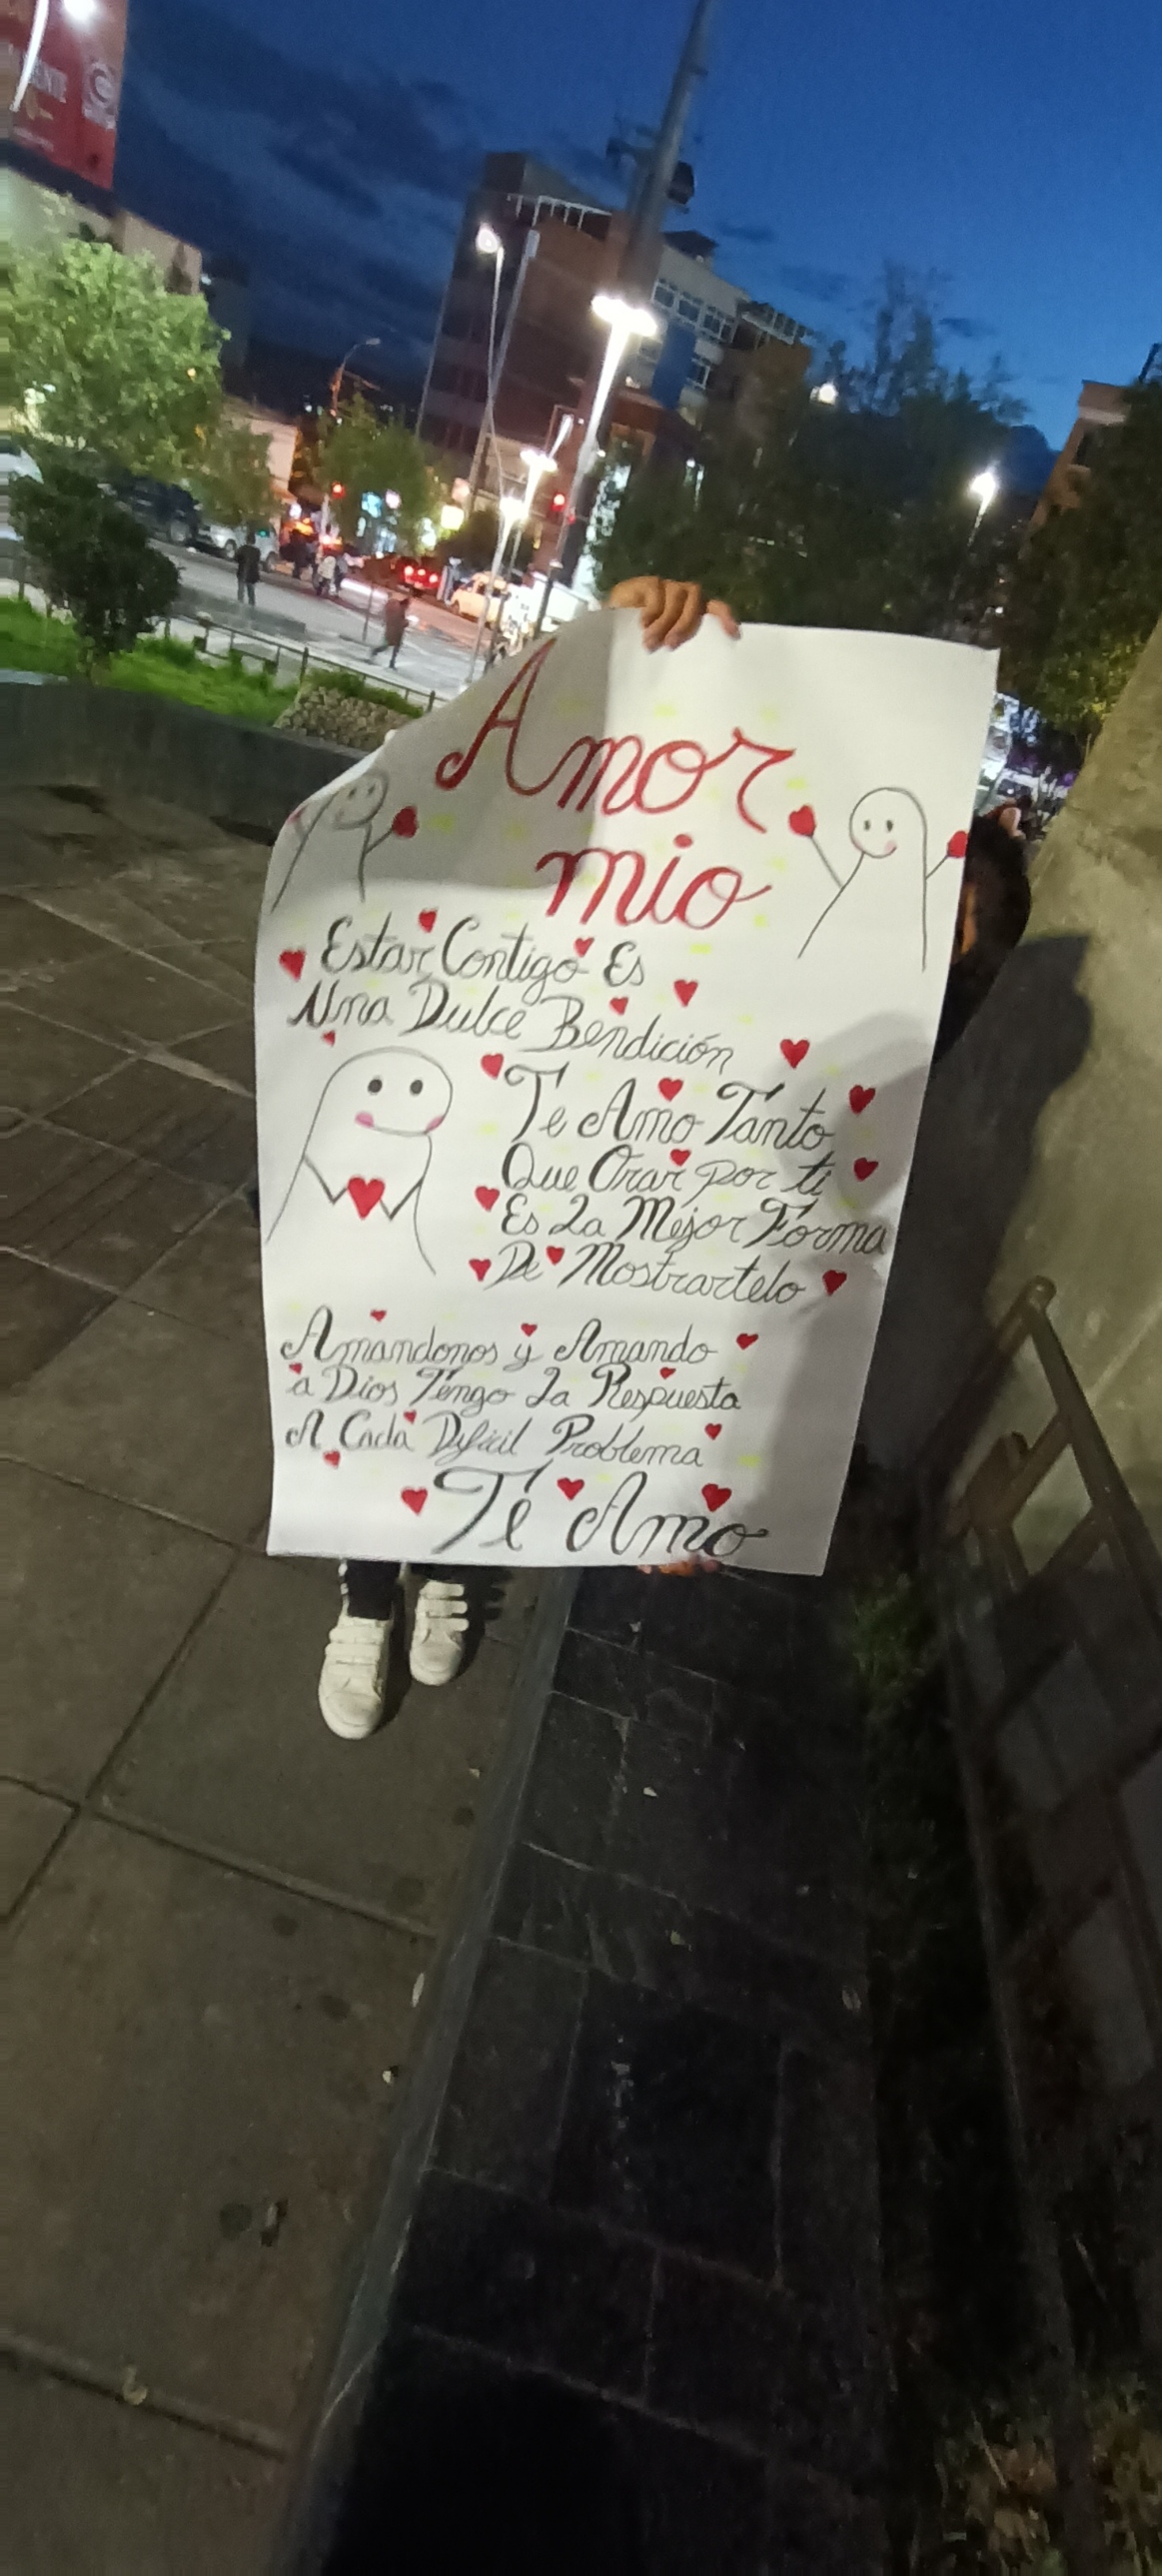 ENTE
Amor
mio
Estar Contigo Es
Una Dulce Bendición
Te Amo Tanto
Que Orar por ti
Es La Mejor Forma
De Mostrartelo
Amandonos y Amando
a Dios Tengo La Respuesta
A Cada Dificil Problema
Te Amo